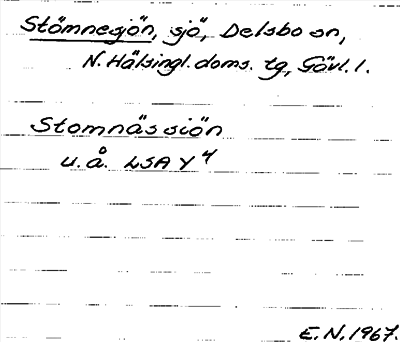 Stömnesjön, sjö, Delsbo sn,
N. Hälsingl. doms. tg, Gävl. l.
Stomnässiön
u.å. LSA Y 4
E.N. 1967.